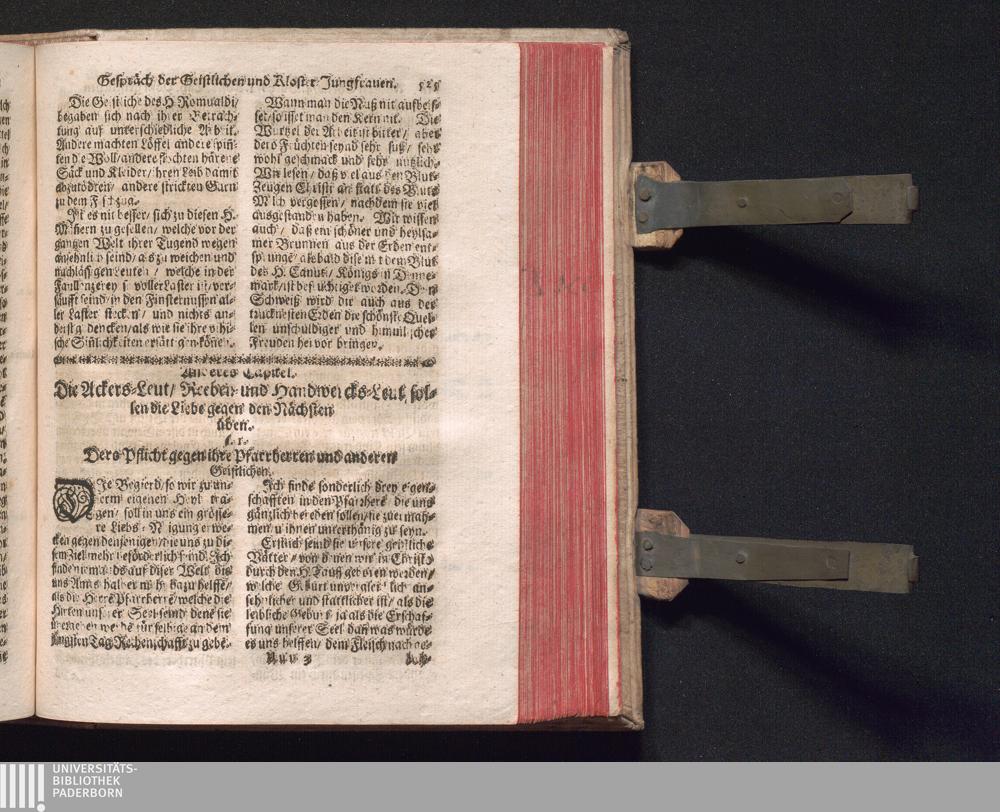 Gespräch der Geistlichen und Kloster-Jungfrauen. 525
Die Geistliche des H. Romualdi/
begaben sich nach ihrer Betrach-
tung auf unterschiedliche Arbeit.
Andere machten Löffel andere spin-
ten die Woll/ andere flochten härene
Säck und Kleider/ ihren Leib damit
abzutödten/ andere strickten Garn
zu dem Fischzug.
Ist es nit besser/ sich zu diesen H.
Männern zu gesellen/ welche vor der
gantzen Welt ihrer Tugend wegen
ansehnlich seind/ als zu weichen und
nachlässigen Leuten/ welche in der
Faullenzerey so voller Laster ist/ ver-
säufft seind/ in den Finsternussen al-
ler Laster stecken/ und nichts an-
derst gedencken/ als wie sie ihre vihi-
sche Sinlichkeiten ersättigen könen.
Wann man die Nuß nit aufbeis-
set/ so isset man den Kern nit. Die
Wurtzel der Arbeit ist bitter/ aber
dero Früchten seynd sehr süß/ sehr
wohl geschmack und sehr nutzlich.
Wir lesen/ daß viel aus den Blut-
Zeugen Christi an statt des Bluts
Milch vergossen/ nachdem sie viel
ausgestanden haben. Wir wissen
auch/ daß ein schöner und heylsa-
mer Brunnen aus der Erden ent-
sprunge/ alsbald dise mit dem Blut
des H. Canuti/ Königs in Denne-
marck/ ist befeuchtiget worden. Dein
Schweiß wird dir auch aus der
truckneisten Erden die schönste Quel-
len unschuldiger und himmlischer
Freuden hervor bringen.
Anderes Capitel.
Die Ackers-Leut/ Reeben- und Handwercks-Leut sol-
len die Liebe gegen den Nächsten
üben.
§. 1.
Dero Pflicht gegen ihre Pfarrherren und anderen
Geistlichen.
Die Begierd/ so wir zu un-
serm eigenen Heyl tra-
gen/ soll in uns ein grösse-
re Liebs-Neigung erwe-
cken gegen denjenigen/ die uns zu di-
sem Ziel mehr beförderlich seind. Ich
finde niemands auf diser Welt/ die
uns Amts halber mehr darzu helffe/
als die Herre Pfarrherre/ welche die
Hirten unserer Seel seind/ dene sie
übergeben werde für selbige an dem
jüngsten Tag Rechenschafft zu gebe-
Ich finde sonderlich drey eigen-
schafften in den Pfarrhere/ die uns
gänzlich bereden sollen/ sie zuermah-
men/ und ihnen unterthänig zu seyn.
Erstlich seind sie unsere geistliche
Vätter/ von denen wir in Christo
durch den H. Tauff geboren werden/
welche Geburt unvergleichlich an-
sehnlicher und stattlicher ist/ als die
leibliche Geburt/ ja als die Erschaf-
fung unserer Seel/ dan was würde
es uns helffen/ dem Fleisch nach ge-
Uuu 3
UNIVERSITÄTS-
BIBLIOTHEK
PADERBORN